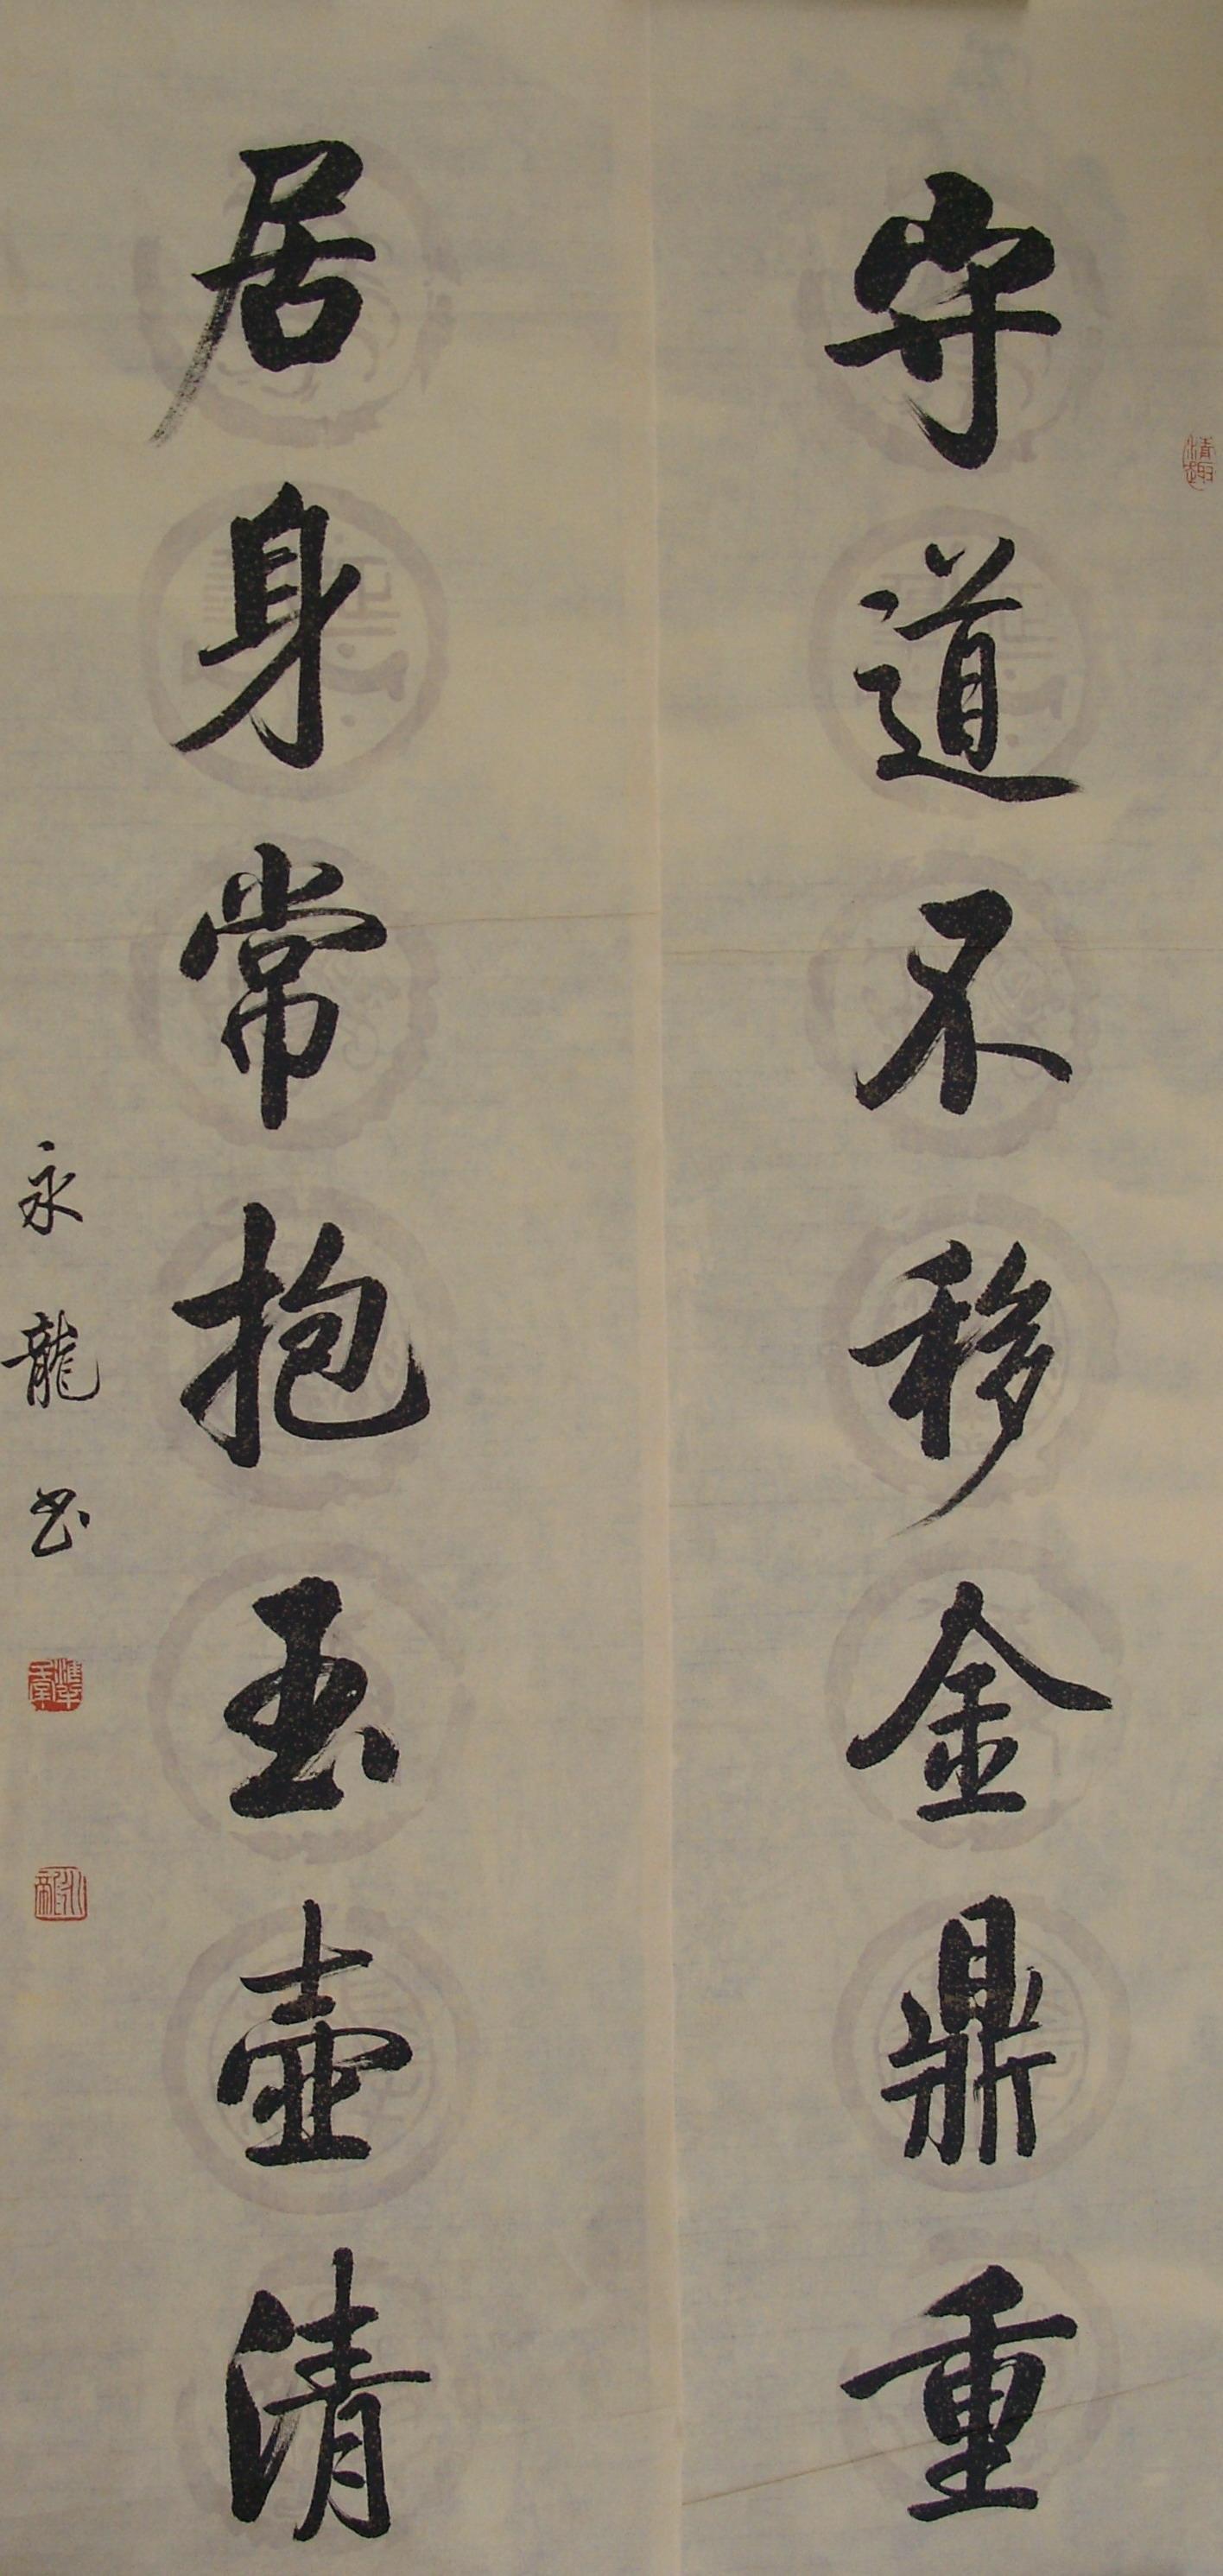 守道不移金鼎重
居身常抱玉壺清
永龍书